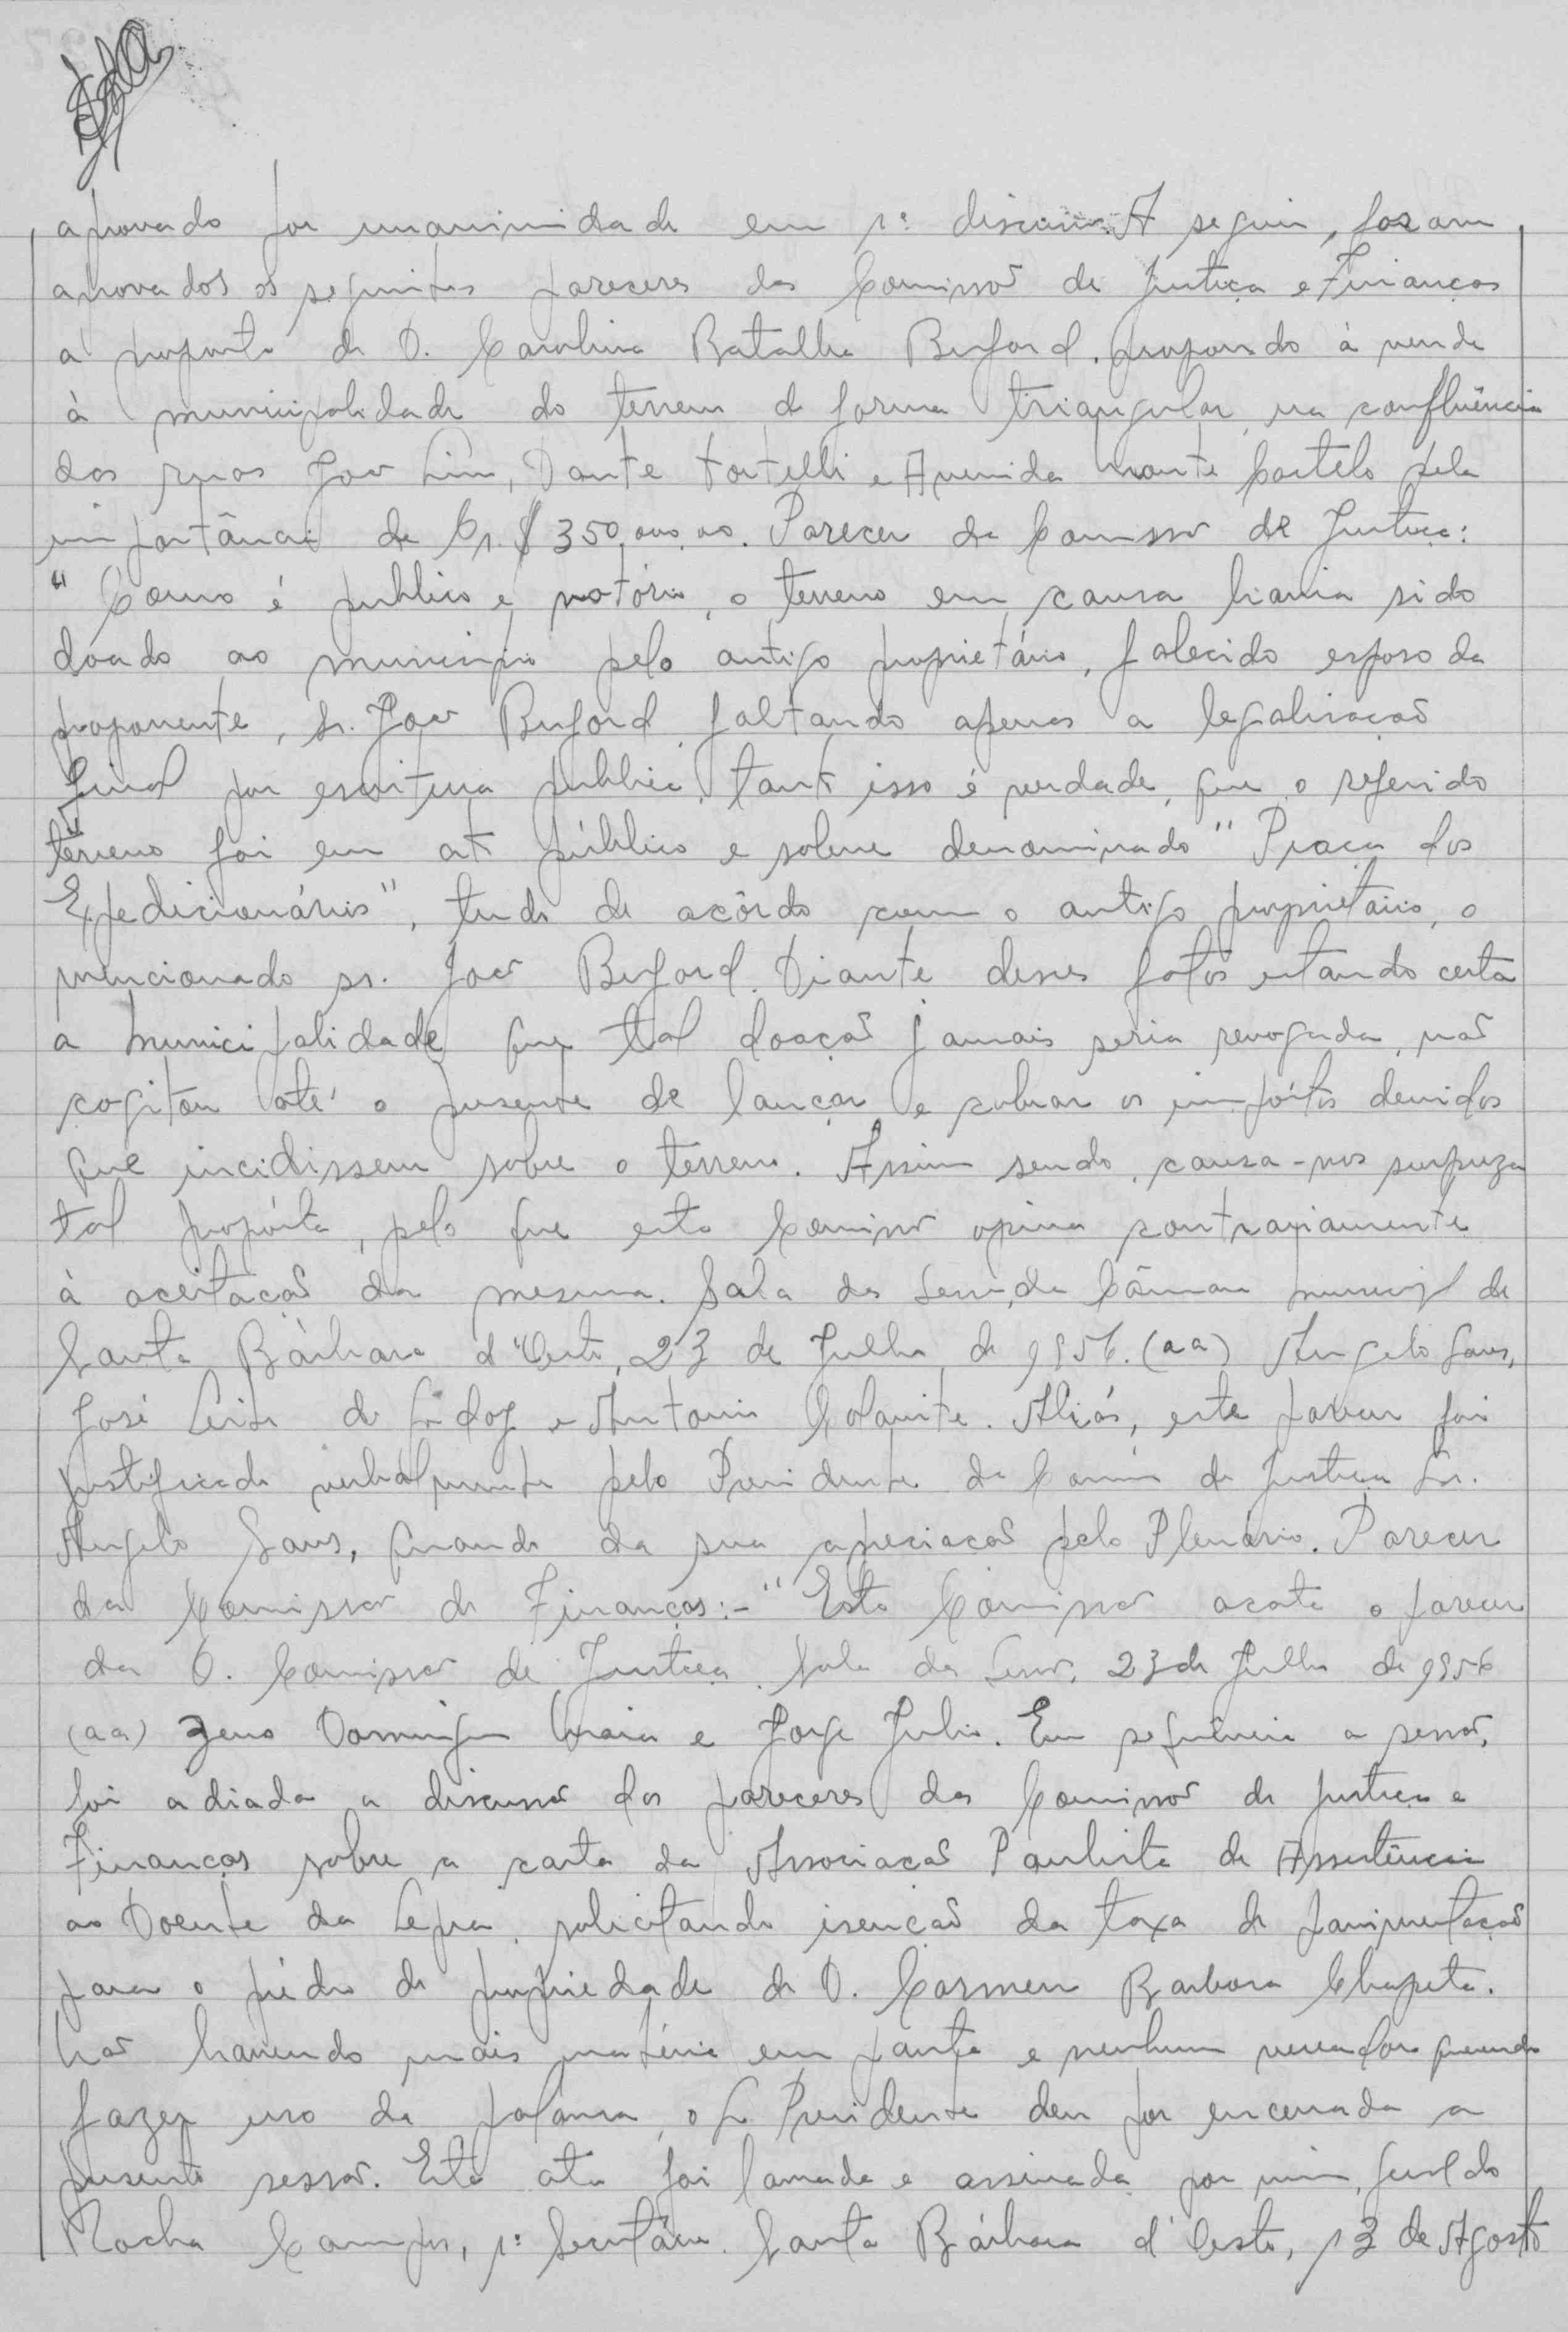 aprovado por unanimidade em 1ª discussão. A seguir, foram
aprovados os seguintes pareceres das Comissões de Justiça e Finanças
à proposta de D. Carolina Batalha Buford, propondo à venda
à municipalidade do terreno de forma triangular, na confluência
das ruas João Lino, Dante Tortelli e Avenida Monte Castelo pela
importância de Cr.$ 350.000,00. Parecer da Comissão de Justiça:
"Como é publico e notório, o terreno em causa havia sido
doado ao município pelo antigo proprietário, falecido esposo da
proponente, sr. João Buford, faltando apenas a legalização
final por escritura publica, tanto isso é verdade, que o referido
terreno foi em ato público e solene denominado "Praça dos
Expedicionários", tudo de acôrdo com o antigo proprietário, o
mencionado sr. João Buford. Diante desses fatos estando certa
a municipalidade que tal doação jamais seria revogada, não
cogitou até o presente de lançar e cobrar os impóstos devidos
que incidissem sobre o terreno. Assim sendo, causa-nos surpreza
tal propósta, pelo que esta Comissão opina contrariamente
à aceitação da mesma. Sala das Sessões da Câmara Municipal de
Santa Bárbara d'Oeste, 23 de Julho de 1956. (aa) Angelo Sans,
José Leite de Godoy e Antonio Colanite. Aliás, este parecer foi
justificado verbalmente pelo Presidente da Comissão de Justiça Sr.
Angelo Sans, quando da sua apreciação pelo Plenário. Parecer
da Comissão de Finanças:- "Esta Comissão acata o parecer
da D. Comissão de Justiça. Sala das Sessões, 23 de Julho de 1956
(aa) Zeno Domingues Maia e Jorge Julio. Em sequência a sessão,
foi adiada a discussão dos pareceres das Comissões de Justiça e
Finanças sobre a carta da Associação Paulista de Assistência
ao Doente da Lepra, solicitando isenção da taxa de pavimentação
para o prédio de propriedade de D. Carmen Barbosa Chapeta.
Não havendo mais matéria em pauta e nenhum vereador querendo
fazer uso da palavra, o Sr Presidente deu por encerrada a
presente sessão. Esta ata foi lavrada e assinada por mim, Geraldo
Rocha Campos, 1º Secretário. Santa Bárbara d'Oeste, 13 de Agosto